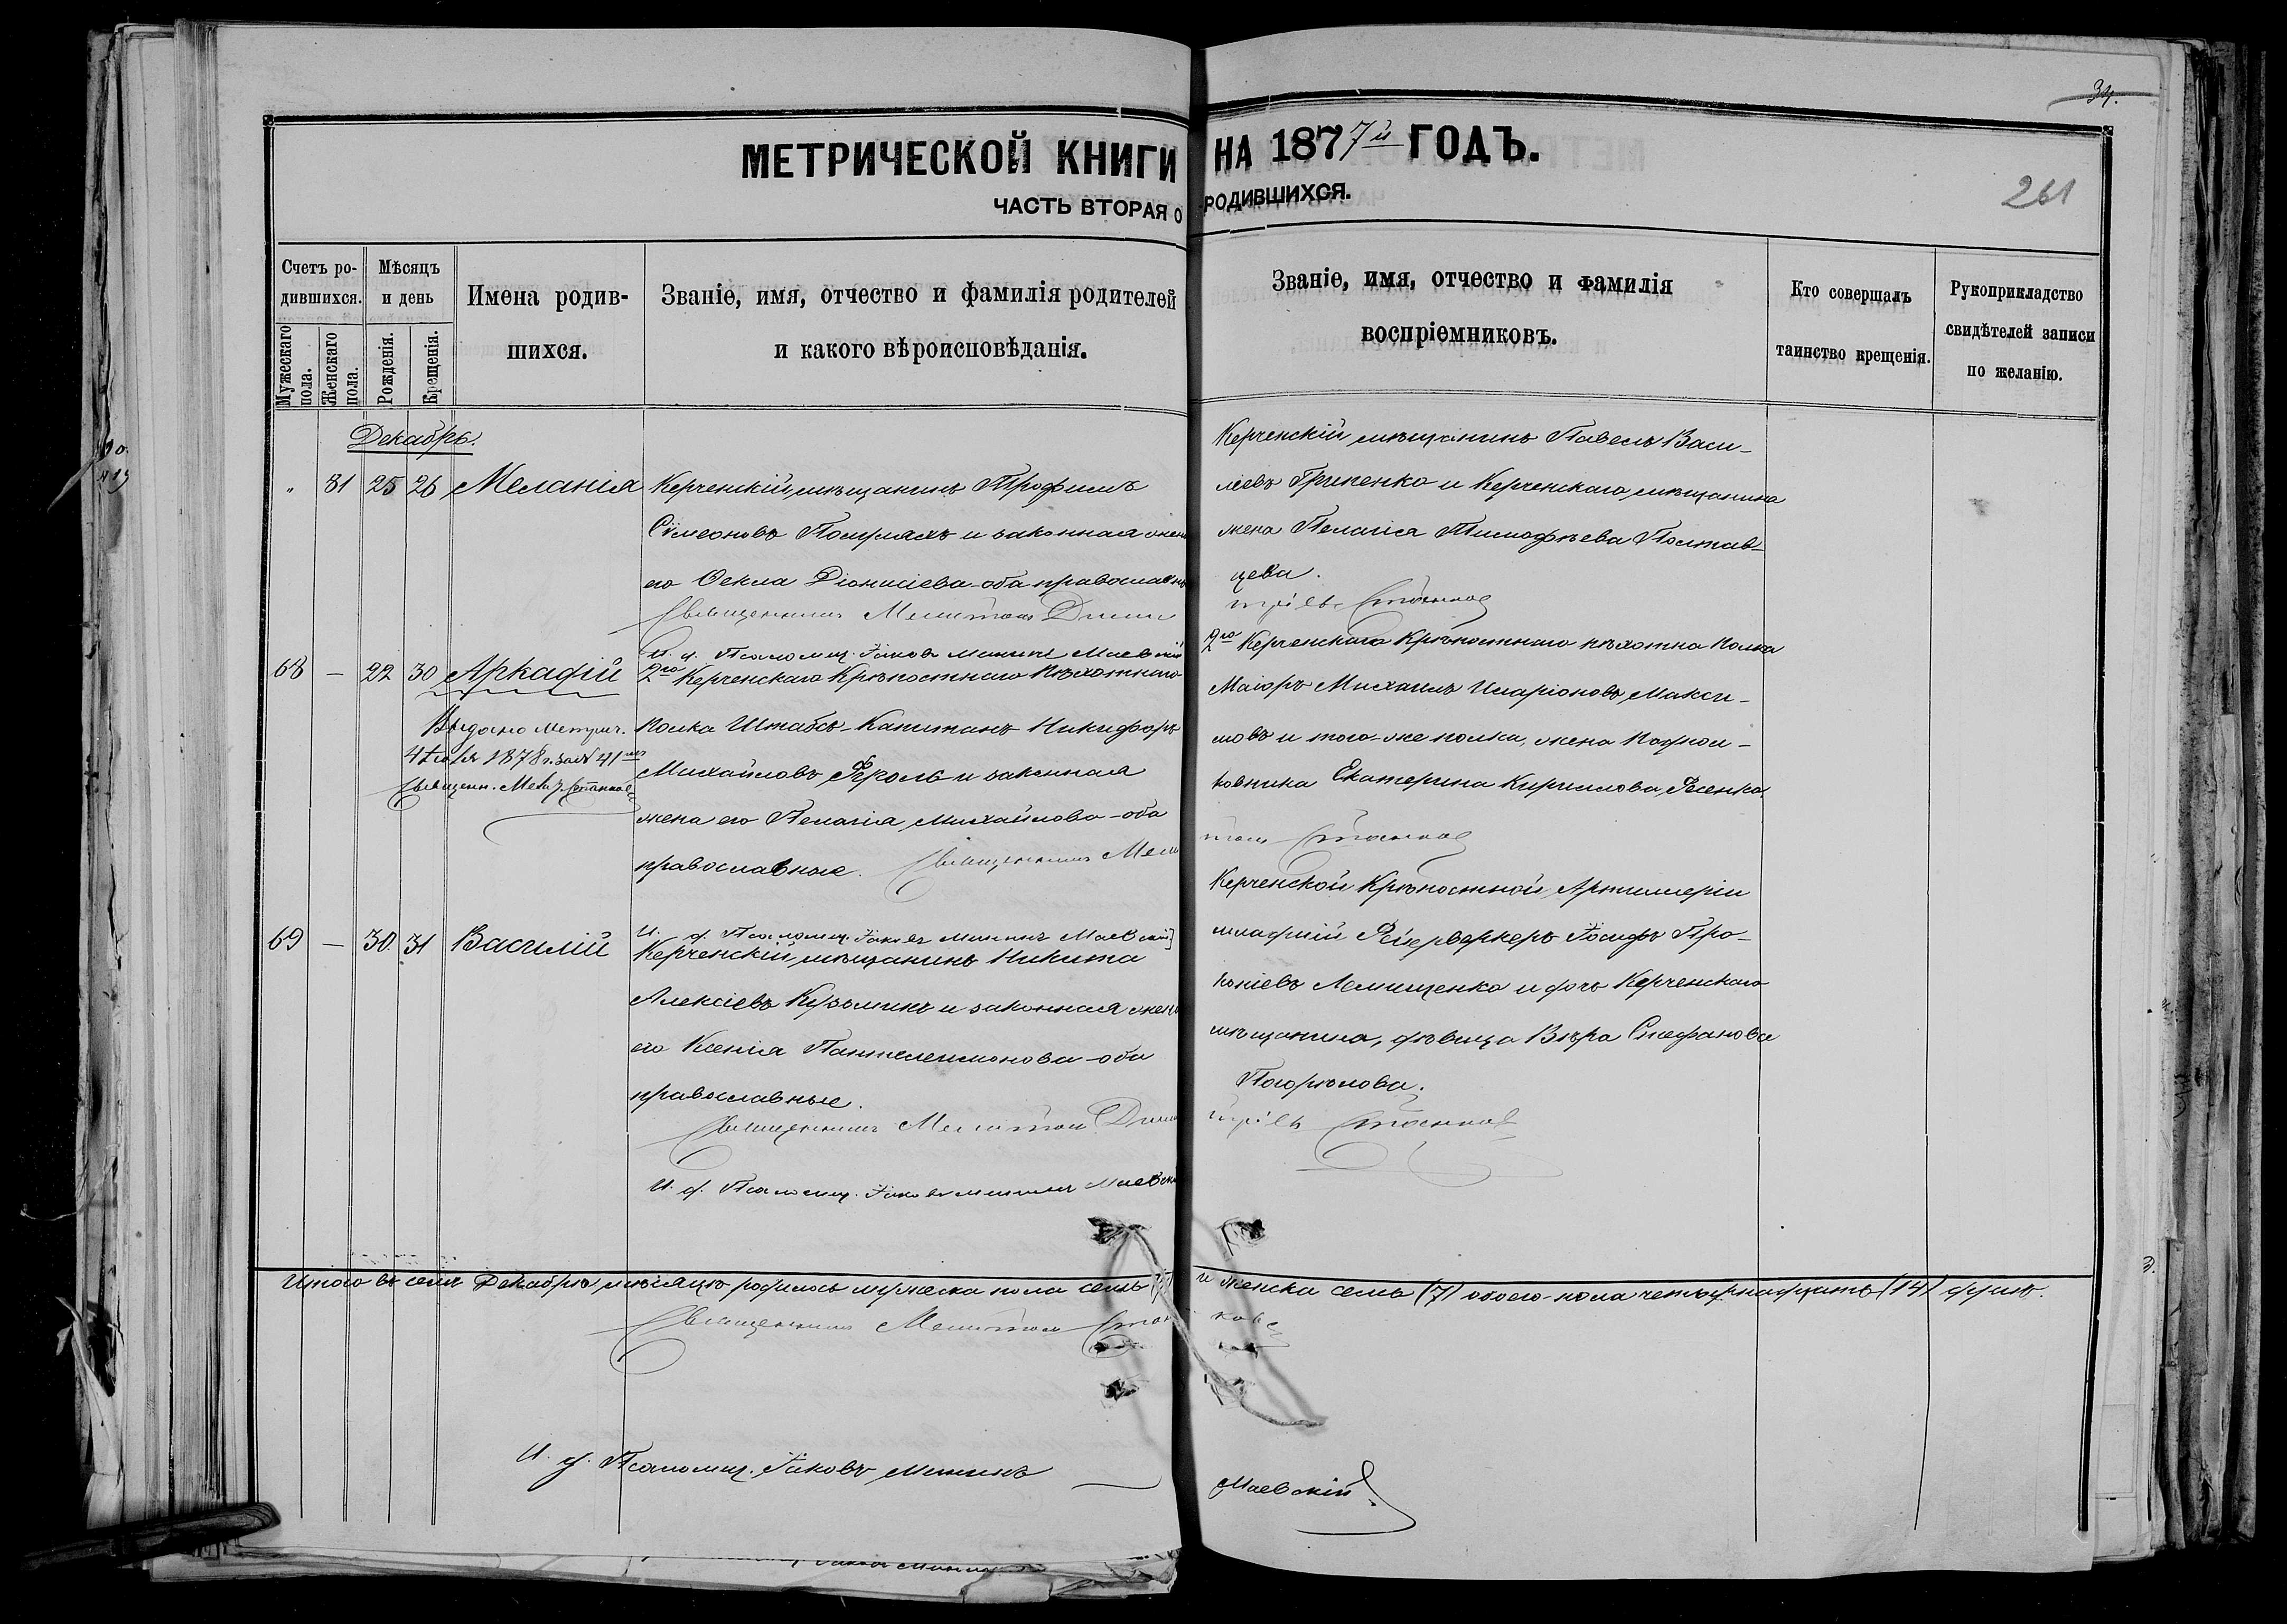 34.
МЕТРИЧЕСКОЙ КНИГИ НА 1877й ГОДЪ.
ЧАСТЬ ВТОРАЯ О РОДИВШИХСЯ.
261
Счетъ ро-
дившихся.
Мужескаго пола.
Женскаго пола.
Мѣсяцъ
и день
Рожденія.
Крещенія.
Имена родив-
шихся.
Званіе, имя, отчество и фамилія родителей
и какого вѣроисповѣданія.
Званіе, имя, отчество и фамилія
воспріемниковъ.
Кто совершалъ
таинство крещенія.
Рукоприкладство
свидѣтелей записи
по желанію.
Декабрь.
" 81 25 26 Меланія Керченскій мѣщанинъ Трофимъ
Сѵмеоновъ и законная жена
его Ѳекла Діонисіева - оба православн
Священникъ Мелитонъ
И. д. Псаломщ. Іаковъ Мининъ Маевскій
Керченскій мѣщанинъ Павелъ Васи-
ліевъ Гриненко и Керченскаго мѣщанина
жена Пелагія Тимофѣева Полтав-
цева.
68 — 22 30 Аркадій 2го Керченскаго Крѣпостнаго Пѣхотнаго
полка Штабсъ-Капитанъ Никифоръ
Михайловъ Фроль и законная
жена его Пелагія Михайлова - оба
православные. Священникъ Мели
Выдано Метрич.
1878 г. за № 41
Священ.
И. д. Псаломщ. Іаковъ Мининъ Маевскій
2го Керченскаго Крѣпостнаго пѣхотна полка
Маіоръ Михаилъ Иларіоновъ Макси-
мовъ и того-же полка, жена Подпол-
ковника Екатерина Кириллова
тонъ Стоянов
69 — 30 31 Василій Керченскій мѣщанинъ Никита
Алексіевъ Кузьминъ и законная жена
его Ксенія Пантелеимонова - оба
православные.
Священникъ Мелитон
И. д. Псаломщ. Іаковъ Мининъ Маевскі
Керченской Крѣпостной Артиллеріи
младшій Фейерверкеръ Іосифъ Про-
копіевъ Лемищенко и дочь Керченскаго
мѣщанина, дѣвица Вѣра Стефанова
Погорѣлова.
Итого въ семъ Декабрѣ мѣсяцѣ родилось мужеска пола семь (7) и женска семь (7) обоего-пола четырнадцать (14) душъ.
Священникъ Мелитонъ Стоянов
И. д. Псаломщ. Іаковъ Мининъ Маевскій